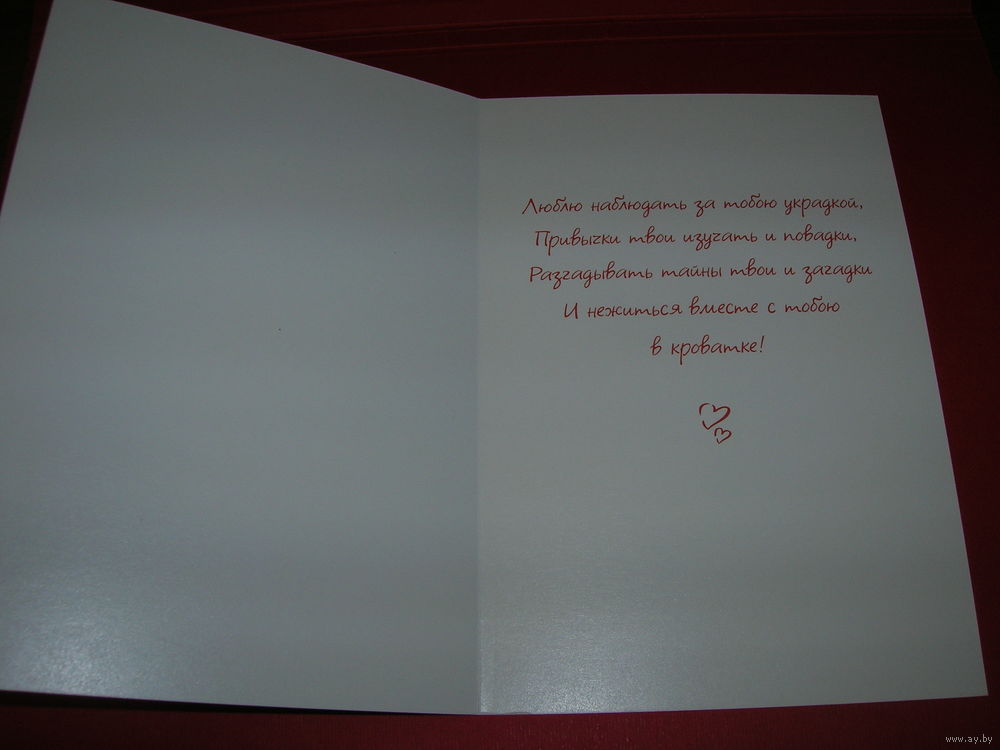 Люблю наблюдать за тобою украдкой,
Привычки твои изучать и повадки,
Разгадывать тайны твои и загадки
И нежиться вместе с тобою
в кроватке!
www.ay.by